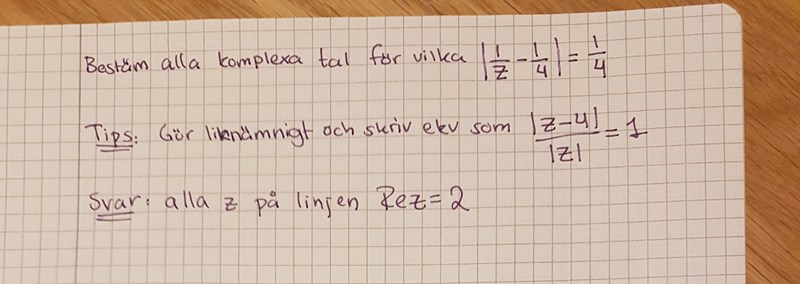 Bestäm alla komplexa tal för vilka |1/z - 1/4| = 1/4
Tips: Gör liknämnigt och skriv ekv som |z-4|/|z| = 1
Svar: alla z på linjen Re z = 2